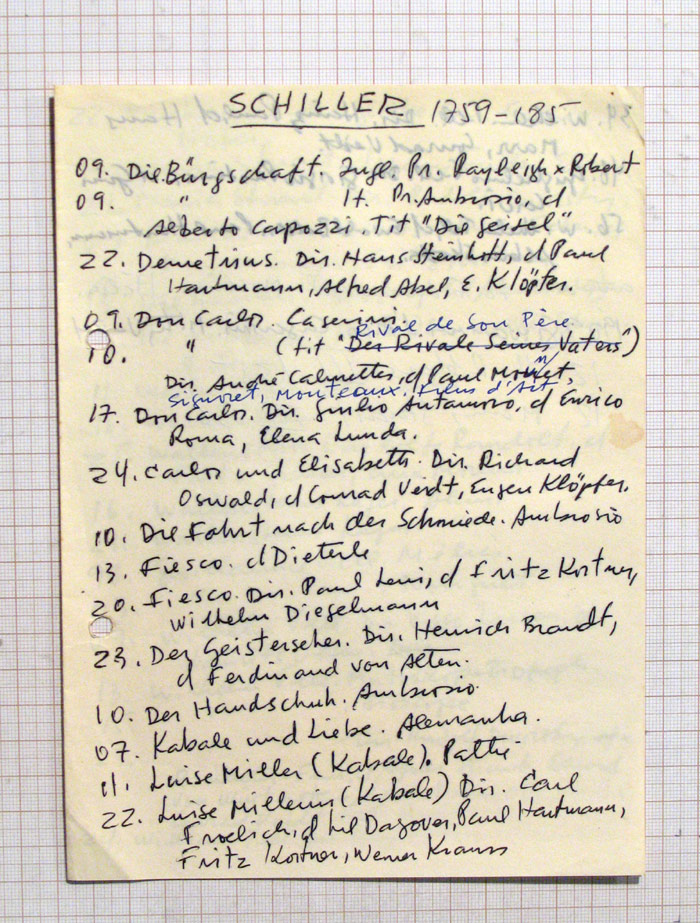 SCHILLER 1759-185
09. Die Bürgschaft. Ingl. Pr. Rayleigh x Robert
09. " It. Pr. Ambrosio, d
Alberto Capozzi. Tit "Die Geisel"
22. Demetrius. Dir. Hans Steinhoff, d Paul
Hartmann, Alfred Abel, E. Klöpfer.
09. Don Carlo. Caserini.
Rival de Son Père
10. " (tit "Der Rivale Seines Vaters")
Dir. André Calmettes, d Paul Mounet,
Signoret, Monteaux. Films d'Art
17. Don Carlos. Dir. Giulio Antamoro, d Enrico
Roma, Elena Lunda.
24. Carlos und Elisabeth. Dir. Richard
Oswald, d Conrad Veidt, Eugen Klöpfer.
10. Die Fahrt nach der Schmiede. Ambrosio
13. Fiesco. d Dieterle
20. Fiesco. Dir. Paul Leni, d Fritz Kortner,
Wilhelm Diegelmann
23. Der Geisterseher. Dir. Heinrich Brandt,
d Ferdinand von Alten.
10. Der Handschuh. Ambrosio.
07. Kabale und Liebe. Alemanha.
11. Luise Miller (Kabale). Pathé
22. Luise Millerin (Kabale) Dir. Carl
Froelich, d Lil Dagover, Paul Hartmann,
Fritz Kortner, Werner Krauss